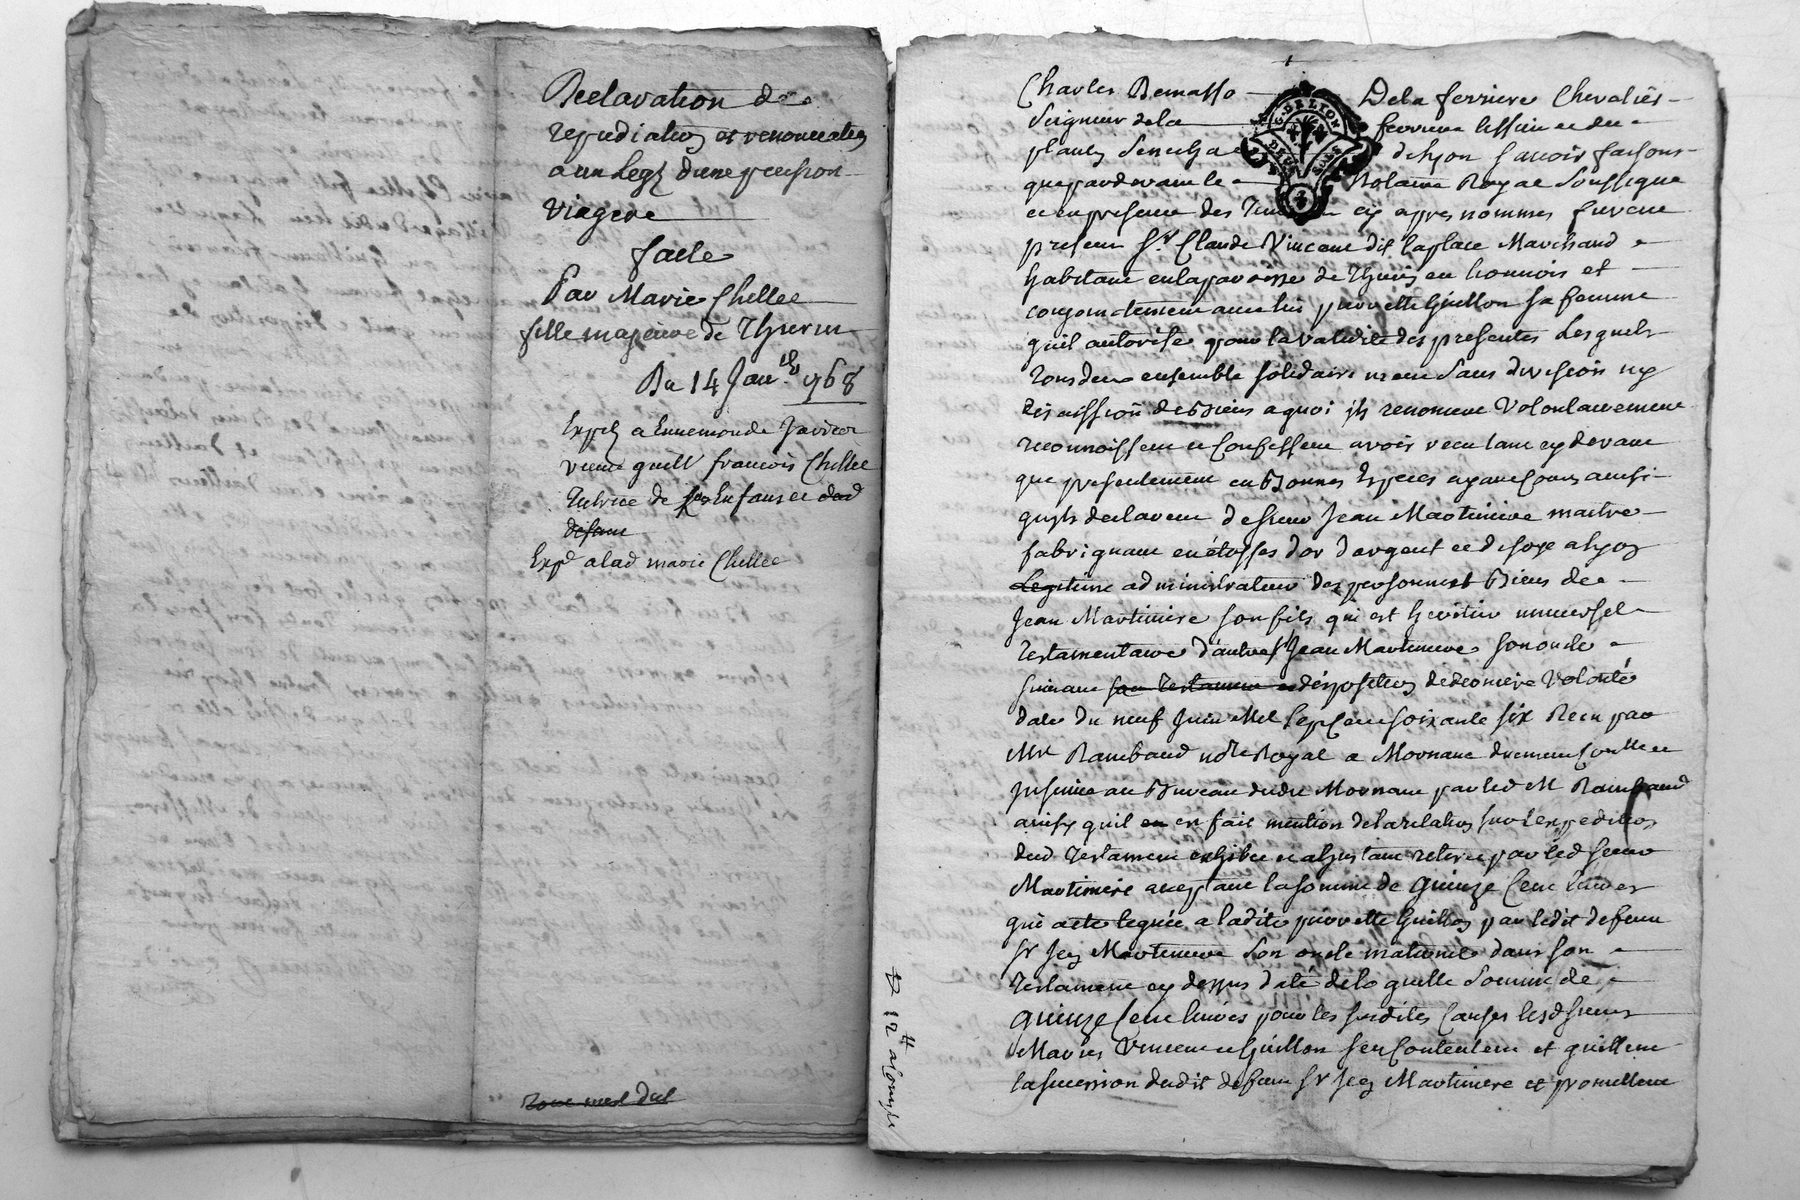 Declaration de
repudiation et renonciation
a un Legz dune pension
viagere
faite
Par Marie Chellee
fille majeure de Thurin
Du 14 Janv.er 1768
Expen a Ennemonde
veuve guill francois Chellee
Tutrice de ses Enfans et dud
defunt
Expd a lad marie Chellee
Tout mest dut
Charles Demasso De la ferriere Chevalier
Seigneur de la ferriere lissieu et du
plantin Senechal de lyon Scavoir faisons
que pardevant le Notaire Royal Soussigné
et en presence des Temoins cy apres nommes furent
present Sr. Claude Vincent dit laplace Marchand
habitant en la parroisse de Thurin en lionnois et
conjointement avec luy pierrette Guillon sa femme
quil authorise pour la validité des presentes Lesquels
Tous deux ensemble solidairement Sans division ny
discussion de biens a quoi ils renoncent Volontairement
reconnoissent et Confessent avoir recu tant cy devant
que presentement en Bonnes Especes ayant Cours ainsi
quils declarent de sieur Jean Martiniere maitre
fabriquant en étoffes d'or d'argent et de soye a lyon
Legitime administrateur des personne et Biens de
Jean Martiniere son fils qui est heritier universel
Testamentaire d'autre Sr Jean Martiniere son oncle
suivant son Testament et disposition de derniere Volonté
daté du neuf Juin Mil Sept Cent soixante six Recu par
Me Raimbaud nore Royal a Mornant duement Controllé et
Insinué au Bureau dudit Mornant par led Me Raimbaud
ainsy quil en en fait mention de la relation sur lexpedition
dud Testament exhibée et a linstant retirée par led sieur
Martiniere acceptant la somme de quinze Cent Livres
qui a été leguée a ladite pierrette Guillon par ledit defunt
Sr Jean Martiniere Son oncle maternel dans son
Testament cy dessus daté de la quelle Somme de
quinze Cent livres pour les susdites Causes lesd sieurs
Mariés Vincent et Guillon sen Contentent et quittent
la succession dudit defunt Sr Jean Martiniere et promettent
12 tt a Compte